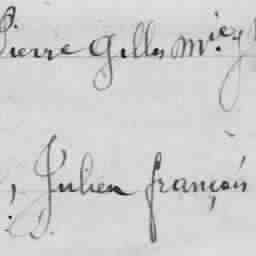 Pierre Gilles M.
Julien françois